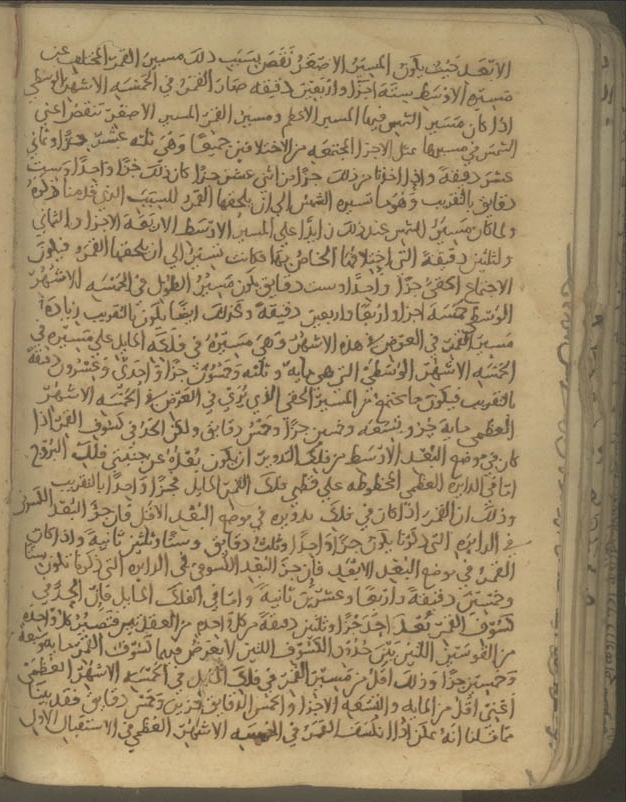 الابعد حيث يكون المسير الاصغر نقص بسبب ذلك مسير القمر المختلف عن
مسيره الاوسط ستة اجزا واربعين دقيقه صار القمر في الخمسه الاشهر الوسطي
اذا كان مسير الشمس فيها المسير الاعظم ومسير القمر المسير الاصغر تنقص اعني
الشمس في مسيرها بمثل الاجزا المجتمعه من الاختلافين جميعا وهي ثلثه عشر جزا وثماني
عشر دقيقة واذا اخذنا من ذلك جزا من اثني عشر جزا كان ذلك جزا واحدا وست
دقايق بالتقريب وهو ما تسيره الشمس الي ان يلحقها القمر للسبب الذي قدمنا ذكره
ولما كان مسير الشمس عند ذلك زايدا علي المسير الاوسط الاربعة الاجزا والثماني
وثلثين دقيقة التي اختلافها الخاص بها فكانت تسير الي ان يلحقها القمر فيكون
الاجتماع الحقي جزا واحدا وست دقايق يكون مسير الطول في الخمسه الاشهر
الوسطي خمسة اجزا واربعا واربعين دقيقة وكذلك ايضا يكون بالتقريب زيادة
مسير القمر في العرض في هذه الاشهر وهي مسيره في فلكه المايل علي مسيره في
الخمسه الاشهر الوسطي التي هي مايه وثلثه وخمسون جزا واحدي وعشرون دقيقة
بالتقريب فيكون ما يجتمع من المسير الحقي الذي يري في العرض في الخمسه الاشهر
العظمي مايه جزو وتسعه وخمسين جزا وخمس دقايق ولكن الحد في كسوف القمر اذا
كان في موضع البعد الاوسط من فلك التدوير ان يكون بعده عن جنبتي فلك البروج
اما في الدايره العظمي المخطوطه علي قطبي فلك القمر المايل فجزا واحدا بالتقريب
وذلك ان القمر اذا كان في فلك تدويره في موضع البعد الاقل فان جزو البعد الكسوفي
في الدايره التي ذكرنا يكون جزا واحدا وثلث دقايق وستا وثلثين ثانية واذا كان
القمر في موضع البعد الابعد فان جزو البعد الكسوفي في الدايره التي ذكرنا يكون ستا
وخمسين دقيقة واربعا وعشرين ثانية واما في الفلك المايل فان الحد في
كسوف القمر بعد احد عشر جزا وثلثين دقيقة من كل واحدة من العقدتين فتصير كل واحده
من القوسين اللتين بين حدود الكسوف اللتين لا يعرض فيها كسوف القمر مايه وسبعه
وخمسين جزا وذلك اقل من مسير القمر في فلك المايل في الخمسه الاشهر العظمي
اعني اقل من المايه والتسعه الاجزا والخمس الدقايق بجزين وخمس دقايق فقد تبين
مما قلنا انه يمكن اذا انكسف القمر في الخمسه الاشهر العظمي في الاستقبال الاول